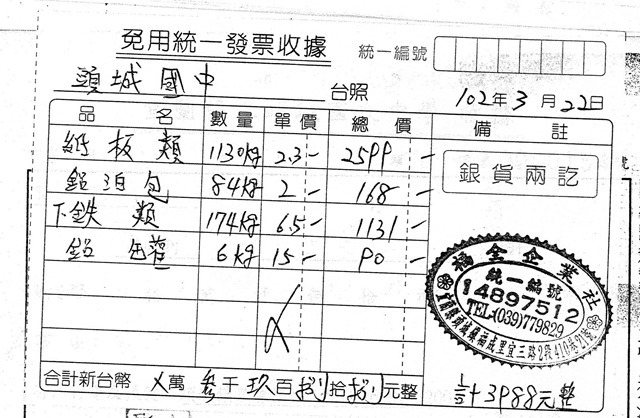 免用統一發票收據
統一編號
頭城國中 台照
102年3月22日
品名 數量 單價 總價 備註
紙板類 1130kg 2.3- 2599-
鋁泊包 84kg 2- 168-
下鉄類 174kg 6.5- 1131-
鋁罐 6kg 15- 90-
銀貨兩訖
福全企業社
統一編號
14897512
TEL:(039)779829
宜蘭縣頭城鎮福成里宜三路2段410巷21號
合計新台幣 X萬 參千玖百捌拾捌元整
計3988元整